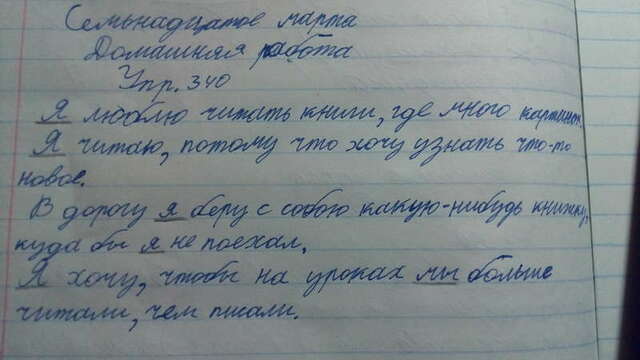 Семьнадцатое марта
Домашняя работа
Упр. 340
Я люблю читать книги, где много картинок.
Я читаю, потому что хочу узнать что-то
новое.
В дорогу я беру с собою какую-нибудь книжку,
куда бы я не поехал.
Я хочу, чтобы на уроках мы больше
читали, чем писали.